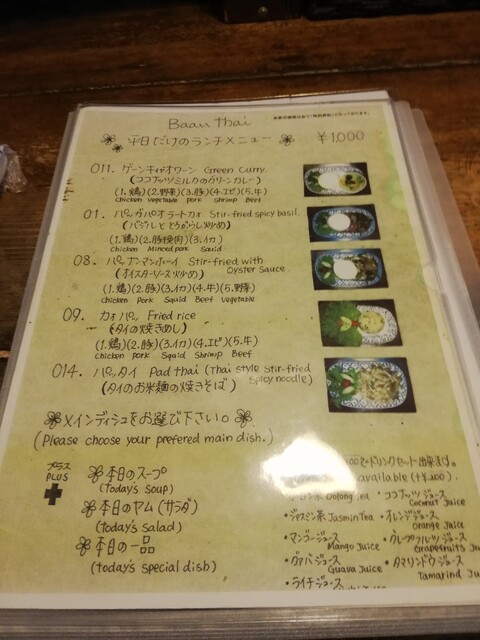 Baan thai
平日だけのランチメニュー ¥1,000
011. ゲーンキィアオワーン Green Curry.
(ココナッツミルクのグリーンカレー)
(1.鶏)(2.野菜)(3.豚)(4.エビ)(5.牛)
Chicken Vegetable pork Shrimp Beef
01. パッガパオラートカオ Stir-fried spicy basil.
(バジルととうがらし炒め)
(1.鶏)(2.豚挽肉)(3.イカ)
Chicken Minced pork Squid
08. パッナンマンホーイ Stir-fried with
(オイスターソース炒め) Oyster Sauce.
(1.鶏)(2.豚)(3.イカ)(4.牛)(5.野菜)
Chicken Pork Squid Beef Vegetable
09. カオパッ Fried rice
(タイの焼きめし)
(1.鶏)(2.豚)(3.イカ)(4.エビ)(5.牛)
Chicken pork Squid Shrimp Beef
014. パッタイ Pad thai (Thai style stir-fried
(タイのお米麺の焼きそば) Spicy noodle)
メインディシュをお選び下さい。
(Please choose your prefered main dish.)
プラス
PLUS
本日のスープ
(today's soup)
本日のヤム(サラダ)
(today's salad)
本日の一品
(today's special dish)
ドリンクセット出来ます。
available (+¥200).
Oolong Tea
・ココナッツジュース
Coconut Juice
・ジャスミン茶 Jasmin Tea
・オレンジジュース
Orange Juice
・マンゴージュース
Mango Juice
・グレープフルーツジュース
Grapefruits Ju
・グァバジュース
Guava Juice
・タマリンドウジュース
Tamarind Ju
・ライチジュース